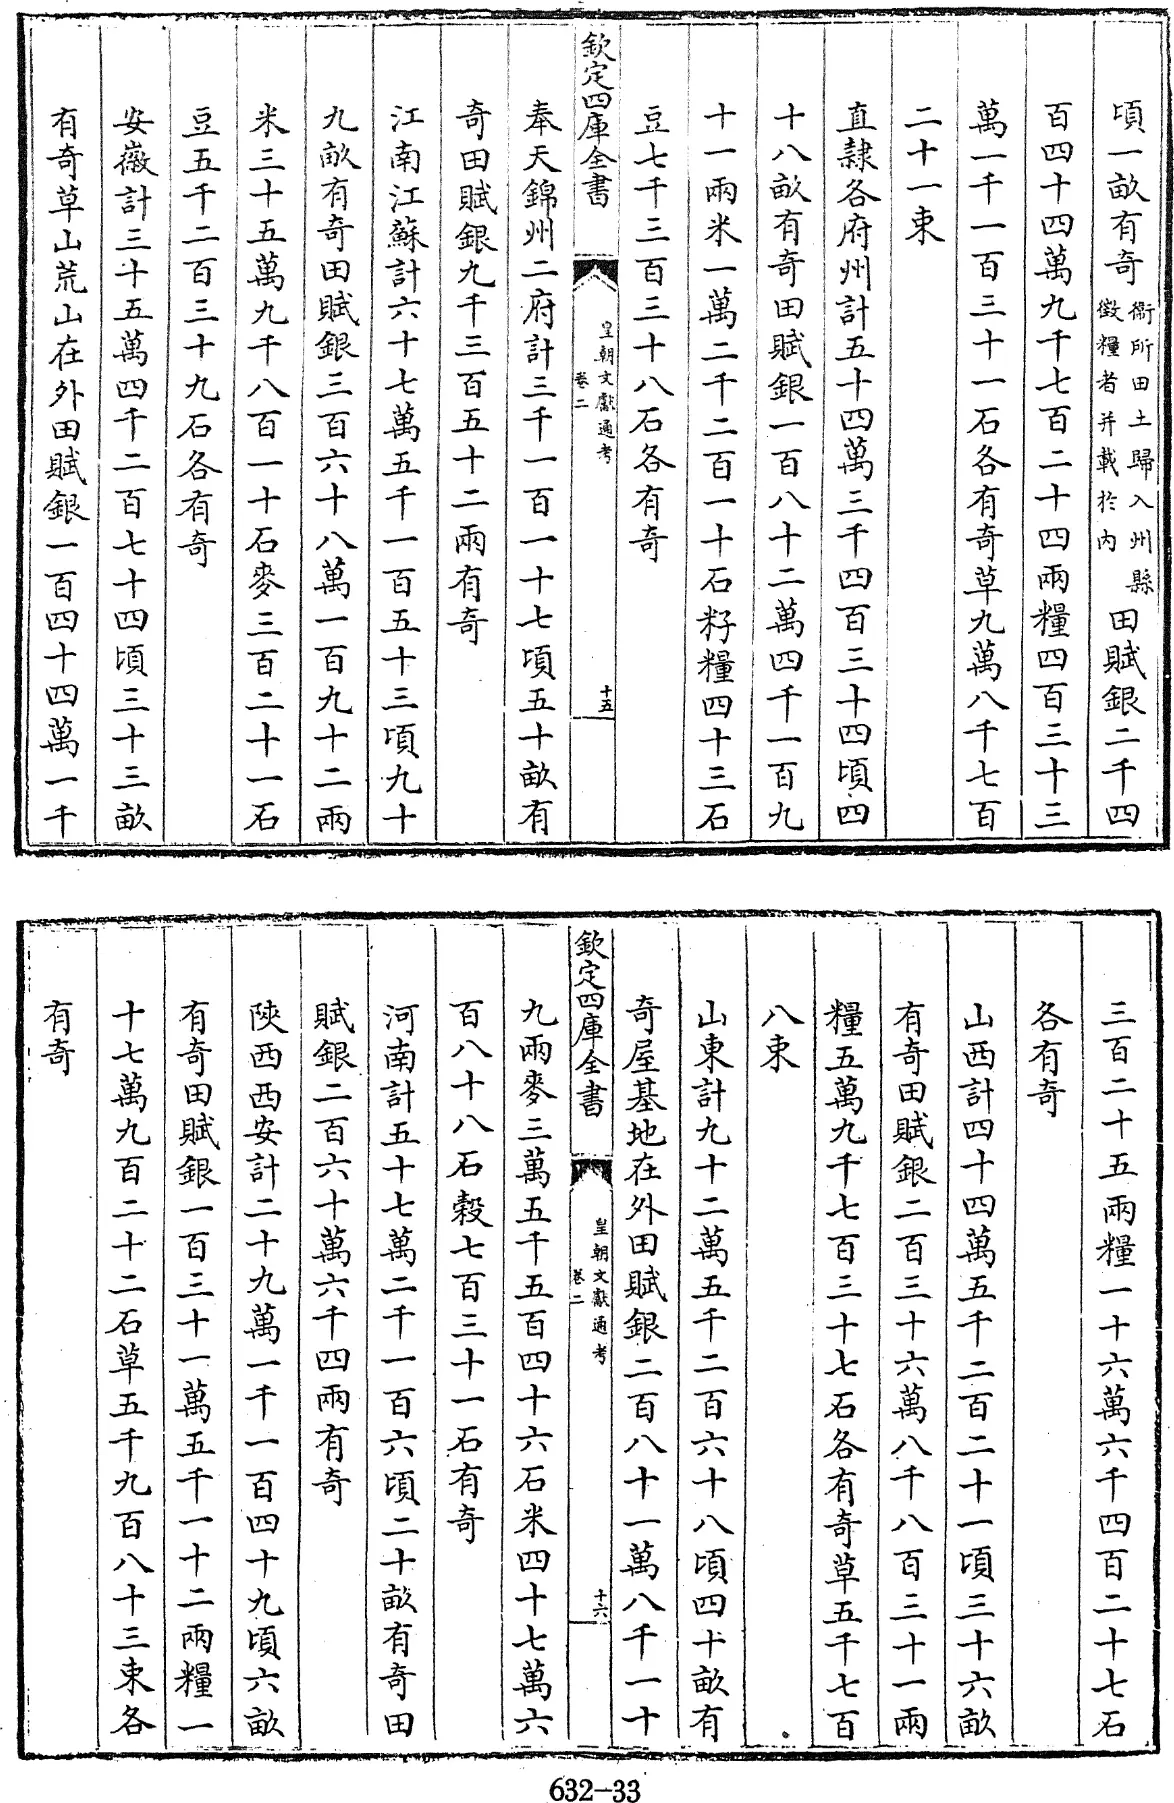 頃一畝有奇衞所田土歸入州縣徵糧者并載於內田賦銀二千四
百四十四萬九千七百二十四兩糧四百三十三
萬一千一百三十一石各有奇草九萬八千七百
二十一束
直隸各府州計五十四萬三千四百三十四頃四
十八畝有奇田賦銀一百八十二萬四千一百九
十一兩米一萬二千二百一十石籽糧四十三石
豆七千三百三十八石各有奇
欽定四庫全書
皇朝文獻通考
卷二
十五
奉天錦州二府計三千一百一十七頃五十畝有
奇田賦銀九千三百五十二兩有奇
江南江蘇計六十七萬五千一百五十三頃九十
九畝有奇田賦銀三百六十八萬一百九十二兩
米三十五萬九千八百一十石麥三百二十一石
豆五千二百三十九石各有奇
安徽計三十五萬四千二百七十四頃三十三畝
有奇草山荒山在外田賦銀一百四十四萬一千
三百二十五兩糧一十六萬六千四百二十七石
各有奇
山西計四十四萬五千二百二十一頃三十六畝
有奇田賦銀二百三十六萬八千八百三十一兩
糧五萬九千七百三十七石各有奇草五千七百
八束
山東計九十二萬五千二百六十八頃四十畝有
奇屋基地在外田賦銀二百八十一萬八千一十
欽定四庫全書
皇朝文獻通考
卷二
十六
九兩麥三萬五千五百四十六石米四十七萬六
百八十八石穀七百三十一石有奇
河南計五十七萬二千一百六頃二十畝有奇田
賦銀二百六十萬六千四兩有奇
陝西西安計二十九萬一千一百四十九頃六畝
有奇田賦銀一百三十一萬五千一十二兩糧一
十七萬九百二十二石草五千九百八十三束各
有奇
632-33